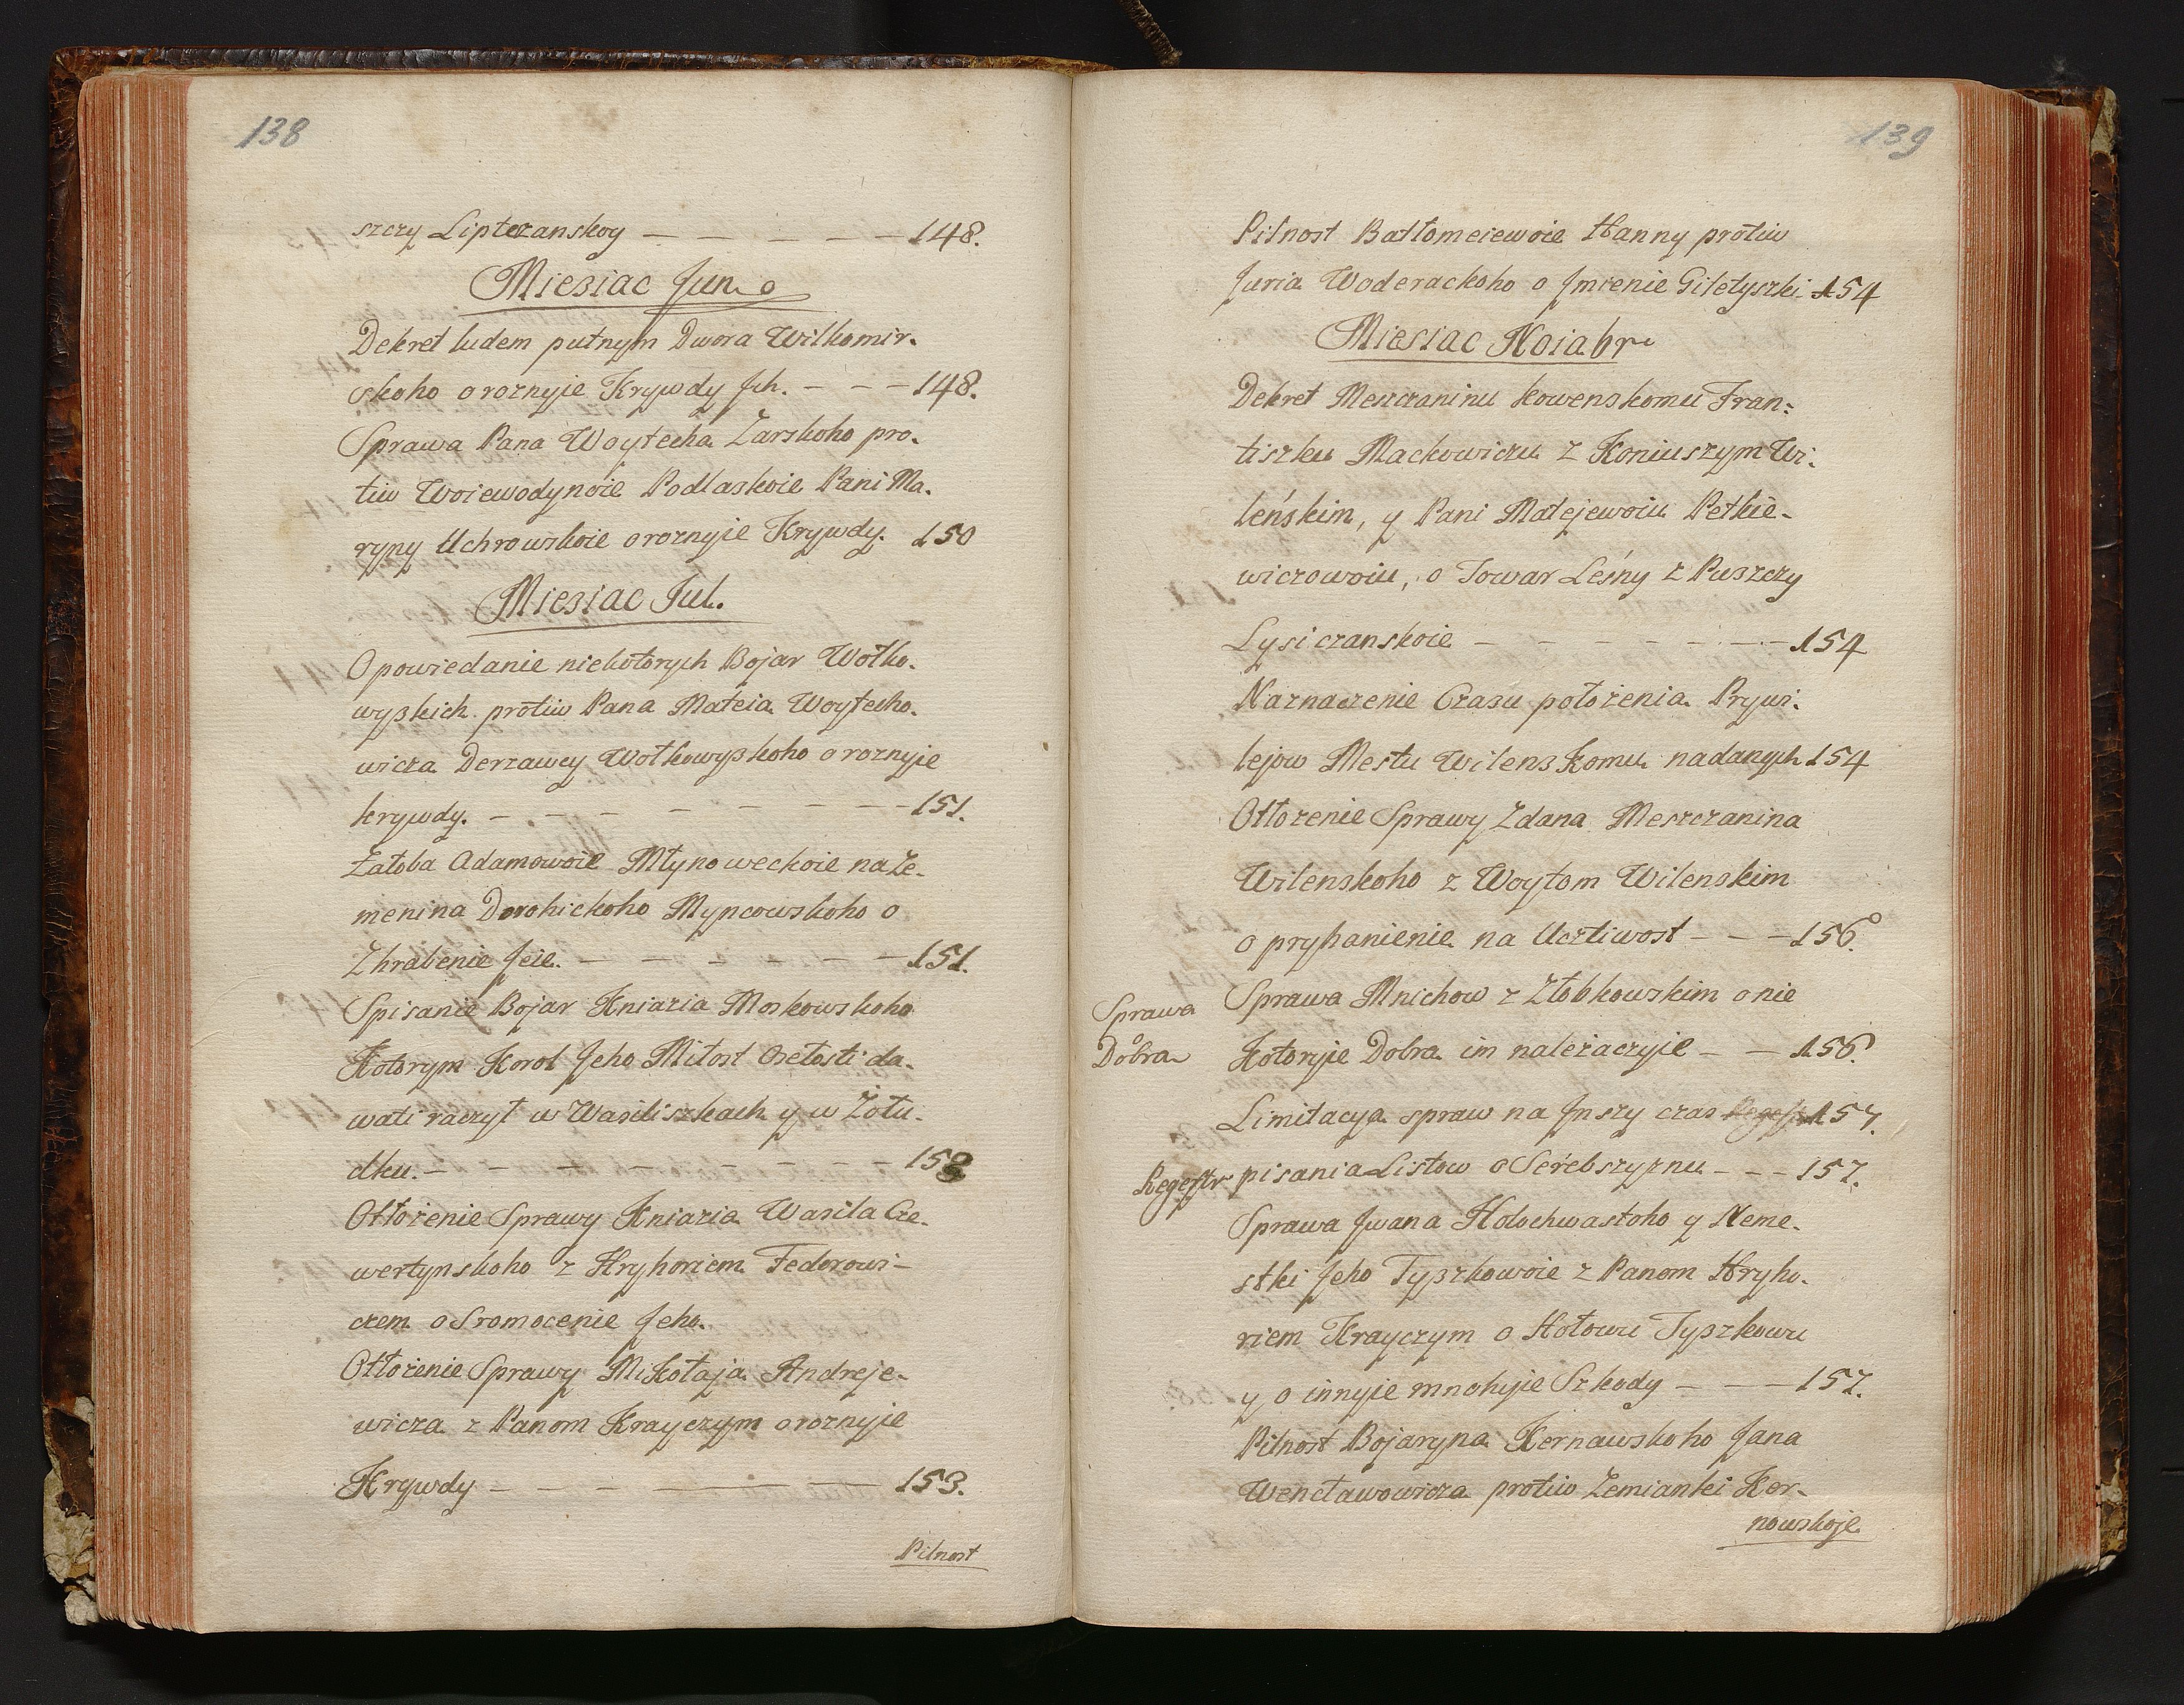 138
szczy Liptczanskoy — — — — — 148.
Miesiac Jun.
Dekret ludem putnym Dwora Wilkomir.
skoho o roznyie Krywdy Jch. — — — 148.
Sprawa Pana Woytecha Zarskoho pro.
tiw Woiewodynoie Podlaskoie Pani Ma.
ryny Uchrowskoie o roznyie Krywdy. 150
Miesiac Jul.
Opowiedanie niekotorych Bojar Wołko.
wyskich protiw Pana Mateia Woytecho.
wicza Derzawcy Wołkowyskoho o roznyie
krywdy. — — — — — — — 151.
Załoba Adamowoie Młynoweckoie na Ze-
menina Dorohickoho Myncowskoho o
Zhrabenie Jeie. — — — — — — 151.
Spisanie Bojar Kniazia Moskowskoho
Kotorym Korol Jeho Miłost Osełosti da-
wati raczył w Wasiliszkach y w Żołu-
dku. — — — — — — — 152
Otłożenie Sprawy Kniazia Wasila Cze-
wertynskoho z Hryhoriem Fedorowi-
czem o Sromocenie Jeho.
Otłożenie Sprawy Mikołaja Andreje-
wicza z Panom Krayczym o roznyie
Krywdy — — — — — — 153.
Pilnost
139
Pilnost Bałtomeiewoie Hanny protiw
Juria Woderackoho o Jmienie Giletyszki 154
Miesiac Noiabr
Dekret Meszczaninu kowenskomu Fran:
tiszku Mackowiczu z Koniuszym Wi.
leńskim, y Pani Matejewoiu Petkie-
wiczowoiu, o Towar Leśny z Puszczy
Lysiczanskoie — — — — — — 154
Naznaczenie Czasu położenia Prywi.
lejow Mestu Wilenskomu nadanych 154
Otłożenie Sprawy Zdana Meszczanina
Wilenskoho z Woytom Wilenskim
o pryhanienie na Ucztiwost — — — 156.
Sprawa Mnichow z Złobkowskim o nie
Sprawa
Dobra
Kotoryie Dobra im należaczyie — — 156.
Limitacya spraw na Jnszy czas Regestr 157.
Regestr pisania Listow o Serebszyznu — — — 157.
Sprawa Jwana Holochwastoho y Neme-
stki Jeho Tyszkowoie z Panom Hryho-
riem Krayczym o Hołowu Tyszkowu
y o innyie mnohyie Szkody — — — 157.
Pilnost Bojaryna Kernawskoho Jana
Wencławowicza protiw Zemianki Ker-
nowskoje